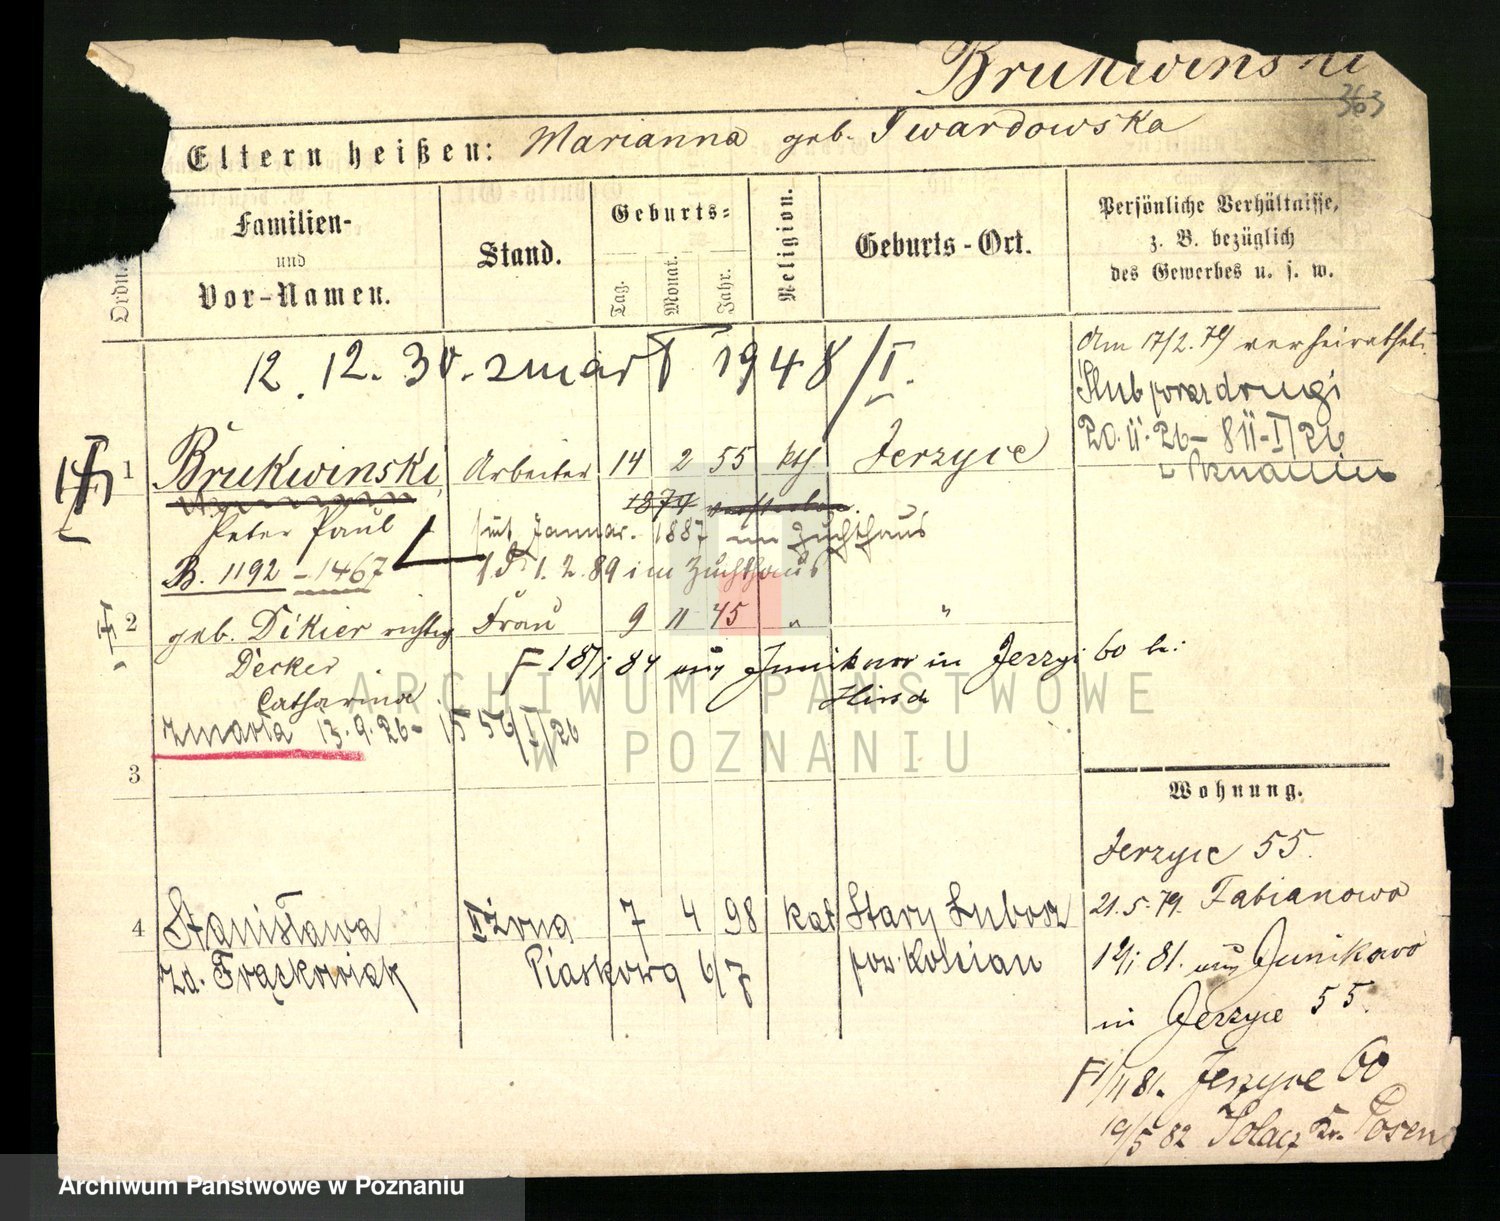 Brukwinski
363
Eltern heißen: Marianna geb. Twardowska
Ordn.
Familien-
und
Vor-Namen.
Stand.
Geburts-
Tag.
Monat.
Jahr.
Religion.
Geburts-Ort.
Persönliche Verhältnisse,
z. B. bezüglich
des Gewerbes u. s. w.
12. 12. 30. zmarł 1948/I.
Am 17/2. 79 verheirathet.
Ślub poraz drugi
20. II. 26 – 811-I/26
w Poznaniu
1 Brukwinski, Arbeiter 14 2 55 kth Jerzyce
1879
Peter Paul seit Januar. 1887 im Zuchthaus
B. 1192 – 1467 1. 2. 89 im Zuchthaus
2 geb. Dikier richtig Frau 9 11 45 " "
Decker
Catharina
F 18/1 84 aus Junikowo in Jerzyce 60 b.
Hirsch
zmarła 13. 9. 26 – 1556/I/26
3
4 Stanisława II żona 7 4 98 kat Stary Lubosz
zd. Frąckowiak Piaskowa 6/7 pow. Kościan
Wohnung.
Jerzyce 55.
21. 5. 79. Fabianowo
1/1 81. aus Junikowo
in Jerzyce 55.
F 1/4 81. Jerzyce 60
19/5 82 Solacz Kr. Posen
ARCHIWUM PAŃSTWOWE
W POZNANIU
Archiwum Państwowe w Poznaniu